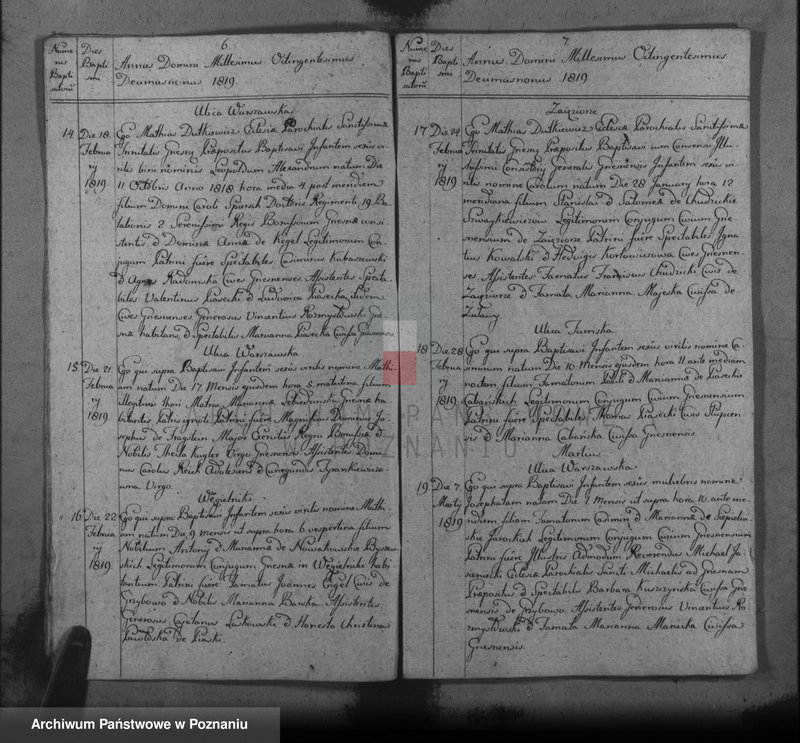 6.
Nume
rus
Bapti
satorū
Dies
Bapti
smi
Annus Domini Millesimus Octingentesimus
Decimusnonus 1819
Ulica Warszawska
14. Die 18. Ego Mathias Dutkiewicz Eclesiæ Parochialis Sanctissimæ
Februa Trinitatis Gnesnæ Præpositus Baptisavi Infantem sexûs vi-
ry rilis bini nominis Leopoldum Alexandrum natum Die
1819 11 Octobris Anno 1818. hora media 4 post meridiem
filium Domini Caroli Doctoris Regimenti 19. Ba-
talionis 2 Serenissimi Regis Borussorum Gnesnæ consi-
stentis & Dominæ Annæ de Kegel Legitimorum Con-
jugum Patrini fuere Spectabiles Casimirus Kubaszewski
& Agnes Radomska Cives Gnesnenses. Assistentes Specta-
biles Valentinus Piasecki & Ludovica Piasecka itidem
Cives Gnesnenses Generosus Vincentius Rozmysłowski Gne-
snæ habitans, & Spectabilis Marianna Piasecka Civissa Gnesnensis.
Ulica Warszawska
15. Die 21 Ego qui supra Baptisavi Infantem sexûs virilis nomine Mathi-
Februa am natum Die 17. Mensis ejusdem hora 5 matutina filium
ry Illegitimi thori Matris Mariannæ Gnesnæ ha-
1819 bitantis Patris ignoti Patrini fuere Magnificus Dominus Jo-
sephus de Fragstein Major Exercitus Regni Borussiæ &
Nobilis Thecla Kugler Virgo Gnesnensis Assistentes Domi-
nus Carolus Reuk Adolescens & Cunegundis
Virgo.
Węgielniki
16. Die 22. Ego qui supra Baptisavi Infantem sexûs virilis nomine Math-
Februa am natum Die 9 mensis ut supra hora 6 vespertina filium
ry Nobilium Antonij & Mariannæ de Nowakowskie
1819. skich Legitimorum Conjugum Gnesnæ in Węgielnik habi-
tantium. Patrini fuere Famatus Joannes Engel Civis de
Grzybowo & Nobilis Marianna Barska Assistentes
Generosus Cajetanus Laskowski & Honesta Christina
Pawloska de Piaski.
7.
Nume
rus
Bapti
satorū
Dies
Bapti
smi
Annus Domini Millesimus Octingentesimus
Decimusnonus 1819
Zajęziorze
17 Die 24. Ego Mathias Dutkiewicz Eclesiæ Parochialis Sanctissimæ
Februa Trinitatis Gnesnæ Præpositus Baptisavi cum Consensu Illu-
ry strissimi Consistorij Generalis Gnesnensis Infantem sexûs vi-
1819 rilis nomine Carolum natum Die 28 January hora 12
meridiana filium Stanislai & Salomeæ de Chudzickie
Szwajkiewiczow Legitimorum Conjugum Civium Gne-
snensium de Zajęziorze Patrini fuere Spectabiles Igna-
tius Kowalski & Hedvigis Cives Gnesnen-
ses Assistentes Famatus Franciscus Chudzicki Civis de
Zajęziorze & Famata Marianna Majeska Civissa de
Zulawy
Ulica Tumska
18. Die 28. Ego qui supra Baptisavi Infantem sexûs virilis nomine Ca-
Februa simirum natum Die 10 Mensis ejusdem hora 11 ante mediam
ry noctem filium Famatorum & Mariannæ de Piaseckie
1819 Cabańskich Legitimorum Conjugum Civium Gnesnensium.
Patrini fuere Spectabiles Thomas Piasecki Civis Slupcen-
sis & Marianna Cabańska Civissa Gnesnensis.
Martius
Ulica Warszawska
19. Die 7. Ego qui supra Baptisavi Infantem sexûs muliebris nomine
Martij Josepham natam Die 1 Mensis ut supra hora 10. ante me-
1819 ridiem filiam Famatorum Casimiri & Mariannæ de
skie Jareckich Legitimorum Conjugum Civium Gnesnensium
Patrini fuere Illustris Admodum Reverendus Michael Ja-
sieniecki Eclesiæ Parochialis Sancti Michaelis ad Gnesnam
Præpositus, & Spectabilis Barbara Kuszyńska Civissa Gne-
snensis de Grzybowo. Assistentes Generosus Vincentius Ro-
zmysłowski & Famata Marianna Manicka Civissa
Gnesnensis.
Archiwum Państwowe w Poznaniu